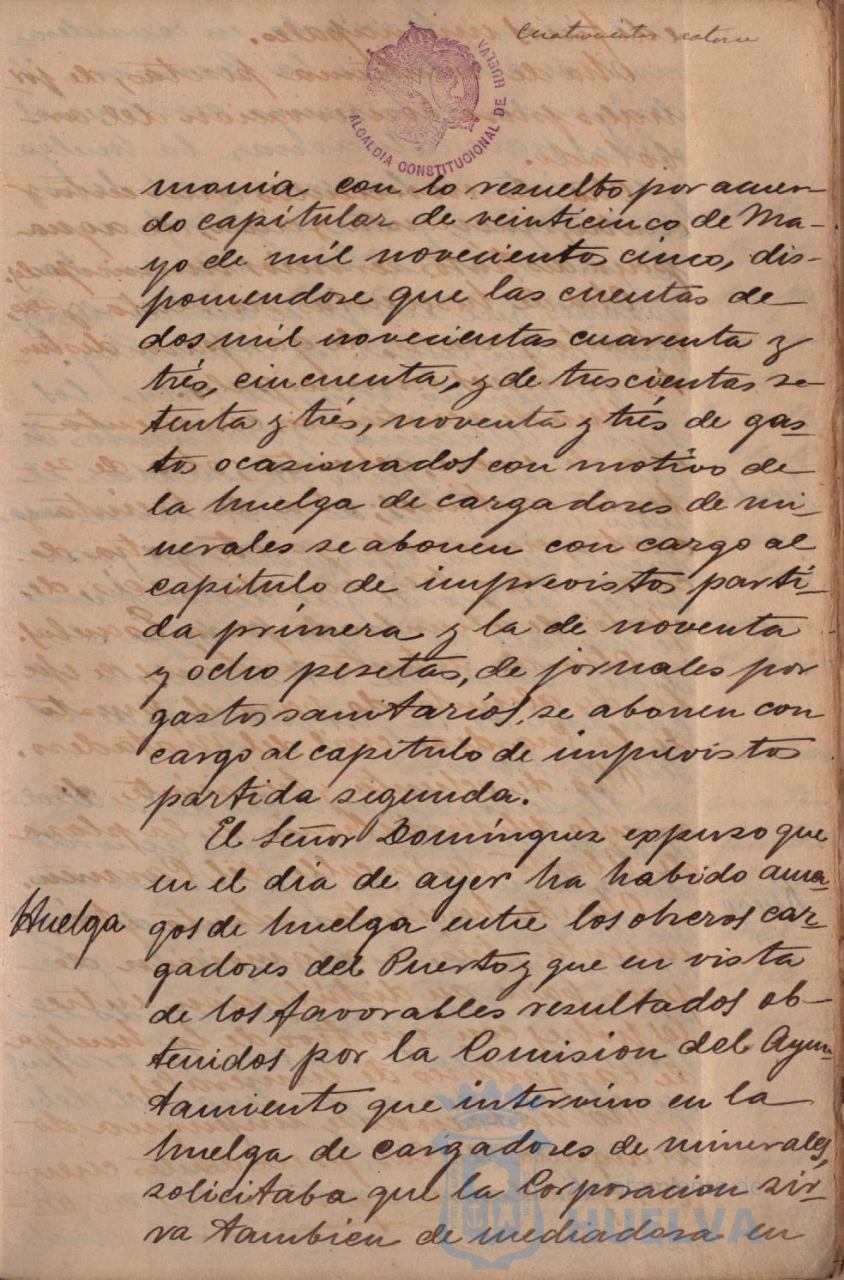 Cuatrocientos catorce
ALCALDIA CONSTITUCIONAL DE HUELVA
monia con lo resuelto por acuer-
do capitular de veinticinco de Ma-
yo de mil novecientos cinco, dis-
poniendose que las cuentas de
dos mil novecientas cuarenta y
trés, cincuenta, y de trescientas se-
tenta y trés, noventa y trés de gas-
to ocasionados con motivo de
la huelga de cargadores de mi-
nerales se abonen con cargo al
capitulo de imprevistos parti-
da primera y la de noventa
y ocho pesetas, de jornales por
gastos sanitarios, se abonen con
cargo al capitulo de imprevistos
partida segunda.
El Señor Domínguez expuso que
en el dia de ayer ha habido ama-
Huelga
gos de huelga entre los obreros car-
gadores del Puerto y que en vista
de los favorables resultados ob-
tenidos por la Comision del Ayun-
tamiento que intervino en la
huelga de cargadores de minerales,
solicitaba que la Corporacion sir-
va tambien de mediadora en
Ayuntamiento de
HUELVA